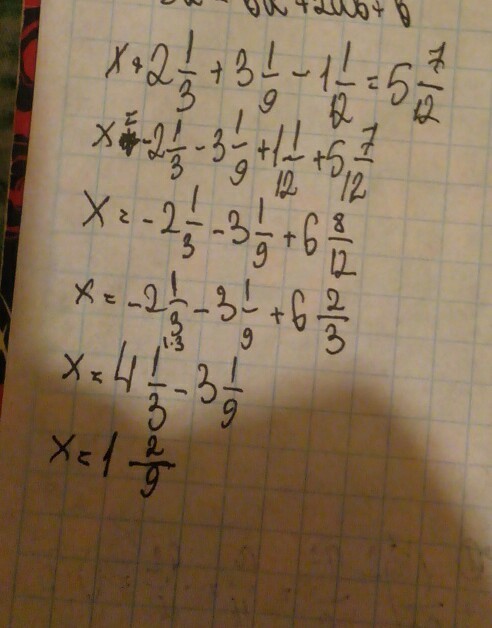 x + 2 1/3 + 3 1/9 - 1 1/12 = 5 7/12
x = -2 1/3 - 3 1/9 + 1 1/12 + 5 7/12
x = -2 1/3 - 3 1/9 + 6 8/12
x = -2 1/3 - 3 1/9 + 6 2/3
x = 4 1/3 - 3 1/9
x = 1 2/9